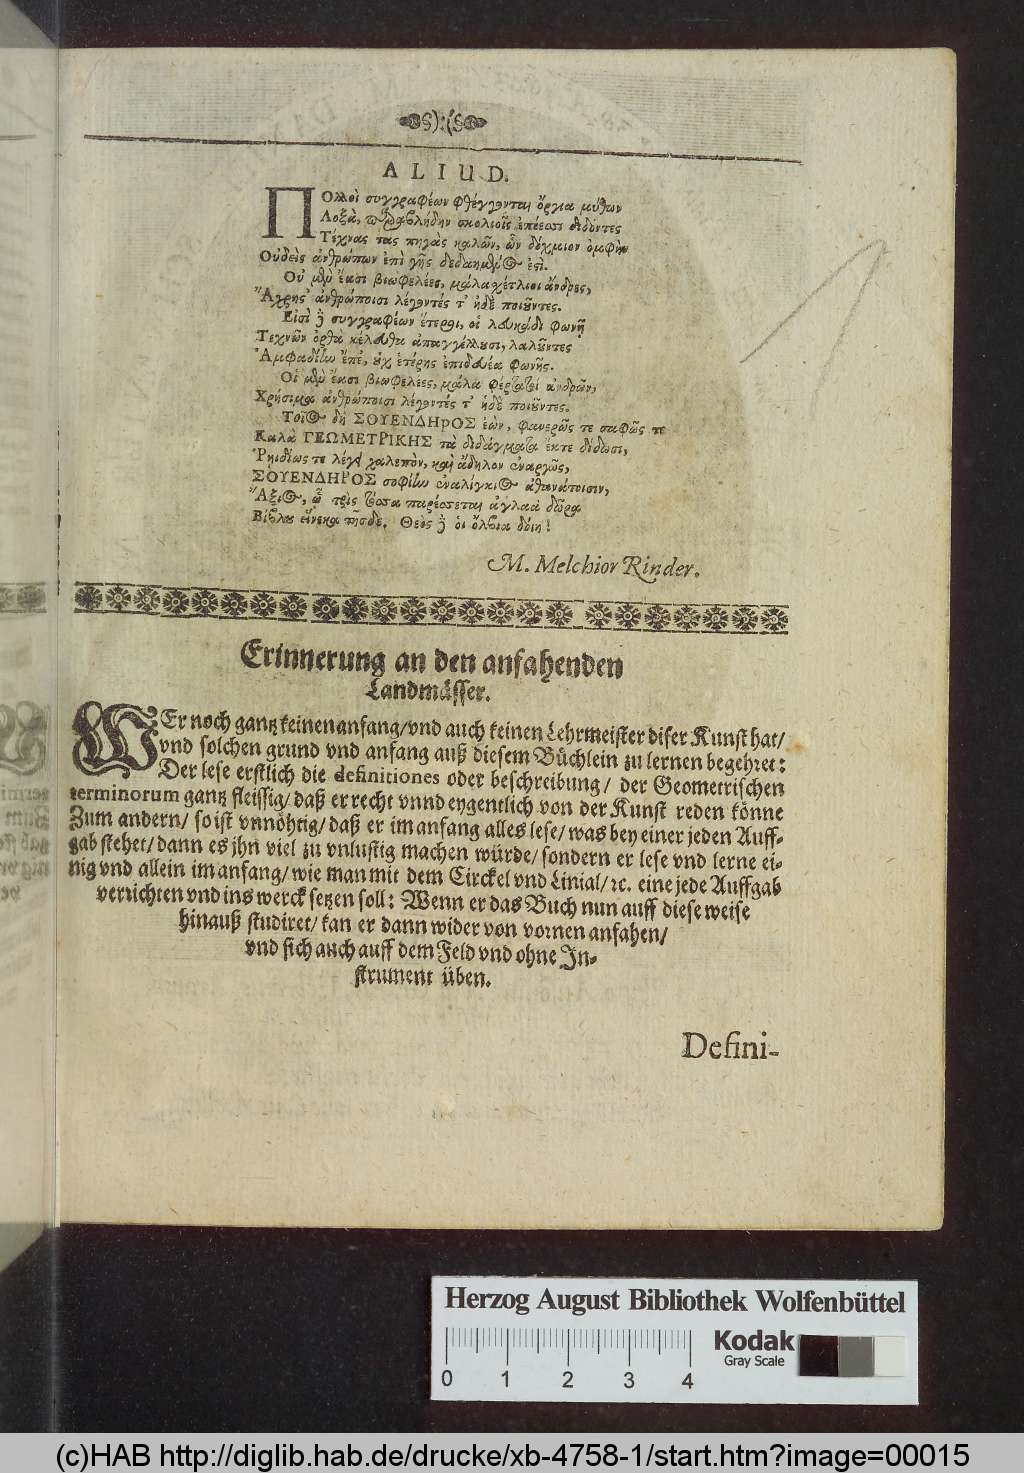 ALIUD.
Πολλοὶ συγγραφέων φθέγγονται ὄργια μύθων
Λοξὰ, παραβλήδην σκολιοῖς ἐπέεσσι διδόντες
Τέχνας τας πηγὰς καλῶν, ὧν δόχμιον ὀμφὴν
Οὐδεὶς ἀνθρώπων ἐπὶ γῆς
Οὐ μὲν ἔασι βιωφελέες, μάλα χέτλιοι ἄνδρες,
ἀνθρώποισι λέγοντές τ' ἠδὲ ποιοῦντες.
Εἰσὶ δὲ συγγραφέων ἕτεροι, οἱ λευκάδι φωνῇ
Τεχνῶν ὀρθὰ κέλευθα ἀπαγγέλλουσι, λαλοῦντες
Ἀμφαδίην φωνῆς.
Οἱ μὲν ἔασι βιωφελέες, μάλα φέρτατοι ἀνδρῶν,
Χρήσιμα ἀνθρώποισι λέγοντές τ' ἠδὲ ποιοῦντες.
Τοῖος δὴ ΣΟΥΕΝΔΗΡΟΣ ἐὼν, φανερῶς τε σαφῶς τε
Καλὰ ΓΕΩΜΕΤΡΙΚΗΣ τὰ διδάγματα ἔκτε δίδωσι,
Ῥηιδίως τε λέγει χαλεπὸν, καὶ ἄδηλον ἐναργῶς,
ΣΟΥΕΝΔΗΡΟΣ σοφίην ἐναλίγκιος ἀθανάτοισιν,
Ἄξιος, ᾧ τρὶς τόσα παρέσσεται ἀγλαὰ δῶρα
Βίβλου εἵνεκα τῆσδε. Θεὸς δὲ οἱ ὄλβια δοίη!
M. Melchior Rinder.
Erinnerung an den anfahenden
Landmässer.
WEr noch gantz keinen anfang/ vnd auch keinen Lehrmeister diser Kunst hat/
vnd solchen grund vnd anfang auß diesem Büchlein zu lernen begehret:
Der lese erstlich die definitiones oder beschreibung/ der Geometrischen
terminorum gantz fleissig/ daß er recht vnnd eygentlich von der Kunst reden könne
Zum andern/ so ist vnnöhtig/ daß er im anfang alles lese/ was bey einer jeden Auff-
gab stehet/ dann es jhn viel zu vnlustig machen würde/ sondern er lese vnd lerne ei-
nig vnd allein im anfang/ wie man mit dem Circkel vnd Linial/ ꝛc. eine jede Auffgab
verrichten vnd ins werck setzen soll: Wenn er das Buch nun auff diese weise
hinauß studiret/ kan er dann wider von vornen anfahen/
vnd sich auch auff dem Feld vnd ohne In-
strument üben.
Defini-
Herzog August Bibliothek Wolfenbüttel
Kodak
Gray Scale
0 1 2 3 4
(c)HAB http://diglib.hab.de/drucke/xb-4758-1/start.htm?image=00015